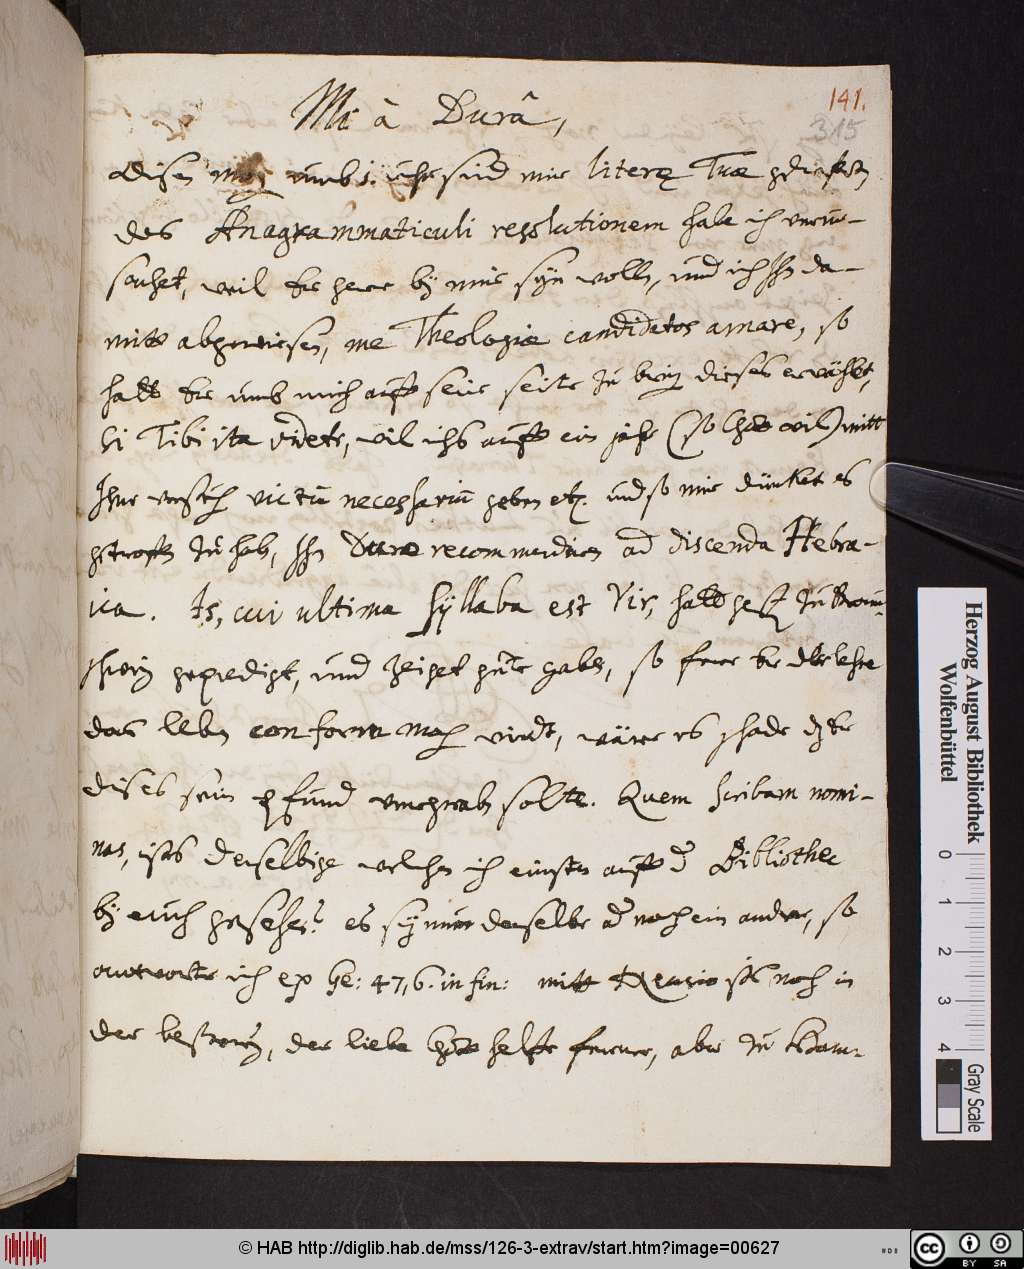 141.
315
Mi â Durâ,
disen umb 1. uhr sind mir literę Tuæ
des Anagrammaticuli resolutionem habe ich verur-
sachet, weil der herr bey mir sein wollen, und ich Ihn da-
mitt abgewiesen, me Theologiæ candidatos amare, so
hatt er umb mich auff seine seite zu bringen dieses erwählet,
si Tibi ita videtr, wil ichs auff ein jahr (so Gott wil) mitt
Ihme versuchen victum necessarium geben etc. und so mir dünket es
getroffen zu haben, Ihn Duræ recommendiren ad discenda Hebra-
ica. Is, cui ultima syllaba est Vir, hatt gestern zu Braun-
schweig geprediget, und zeiget gute gaben, so ferne er der lehre
das leben conform machen wirdt, wäre es schade dz er
dises sein pfund vergraben solte. Quem scribam nomi-
nas, ists derselbige welchen ich einsten auff der Bibliothec
bey euch gesehen? es sey nun derselbe oder noch ein ander, so
antworte ich ex Ge: 47, 6. in fin: mitt ists noch in
der besserung, der liebe Gott helffe ferner, aber zu
Herzog August Bibliothek
Wolfenbüttel
0
1
2
3
4
Gray Scale
© HAB http://diglib.hab.de/mss/126-3-extrav/start.htm?image=00627
cc BY SA